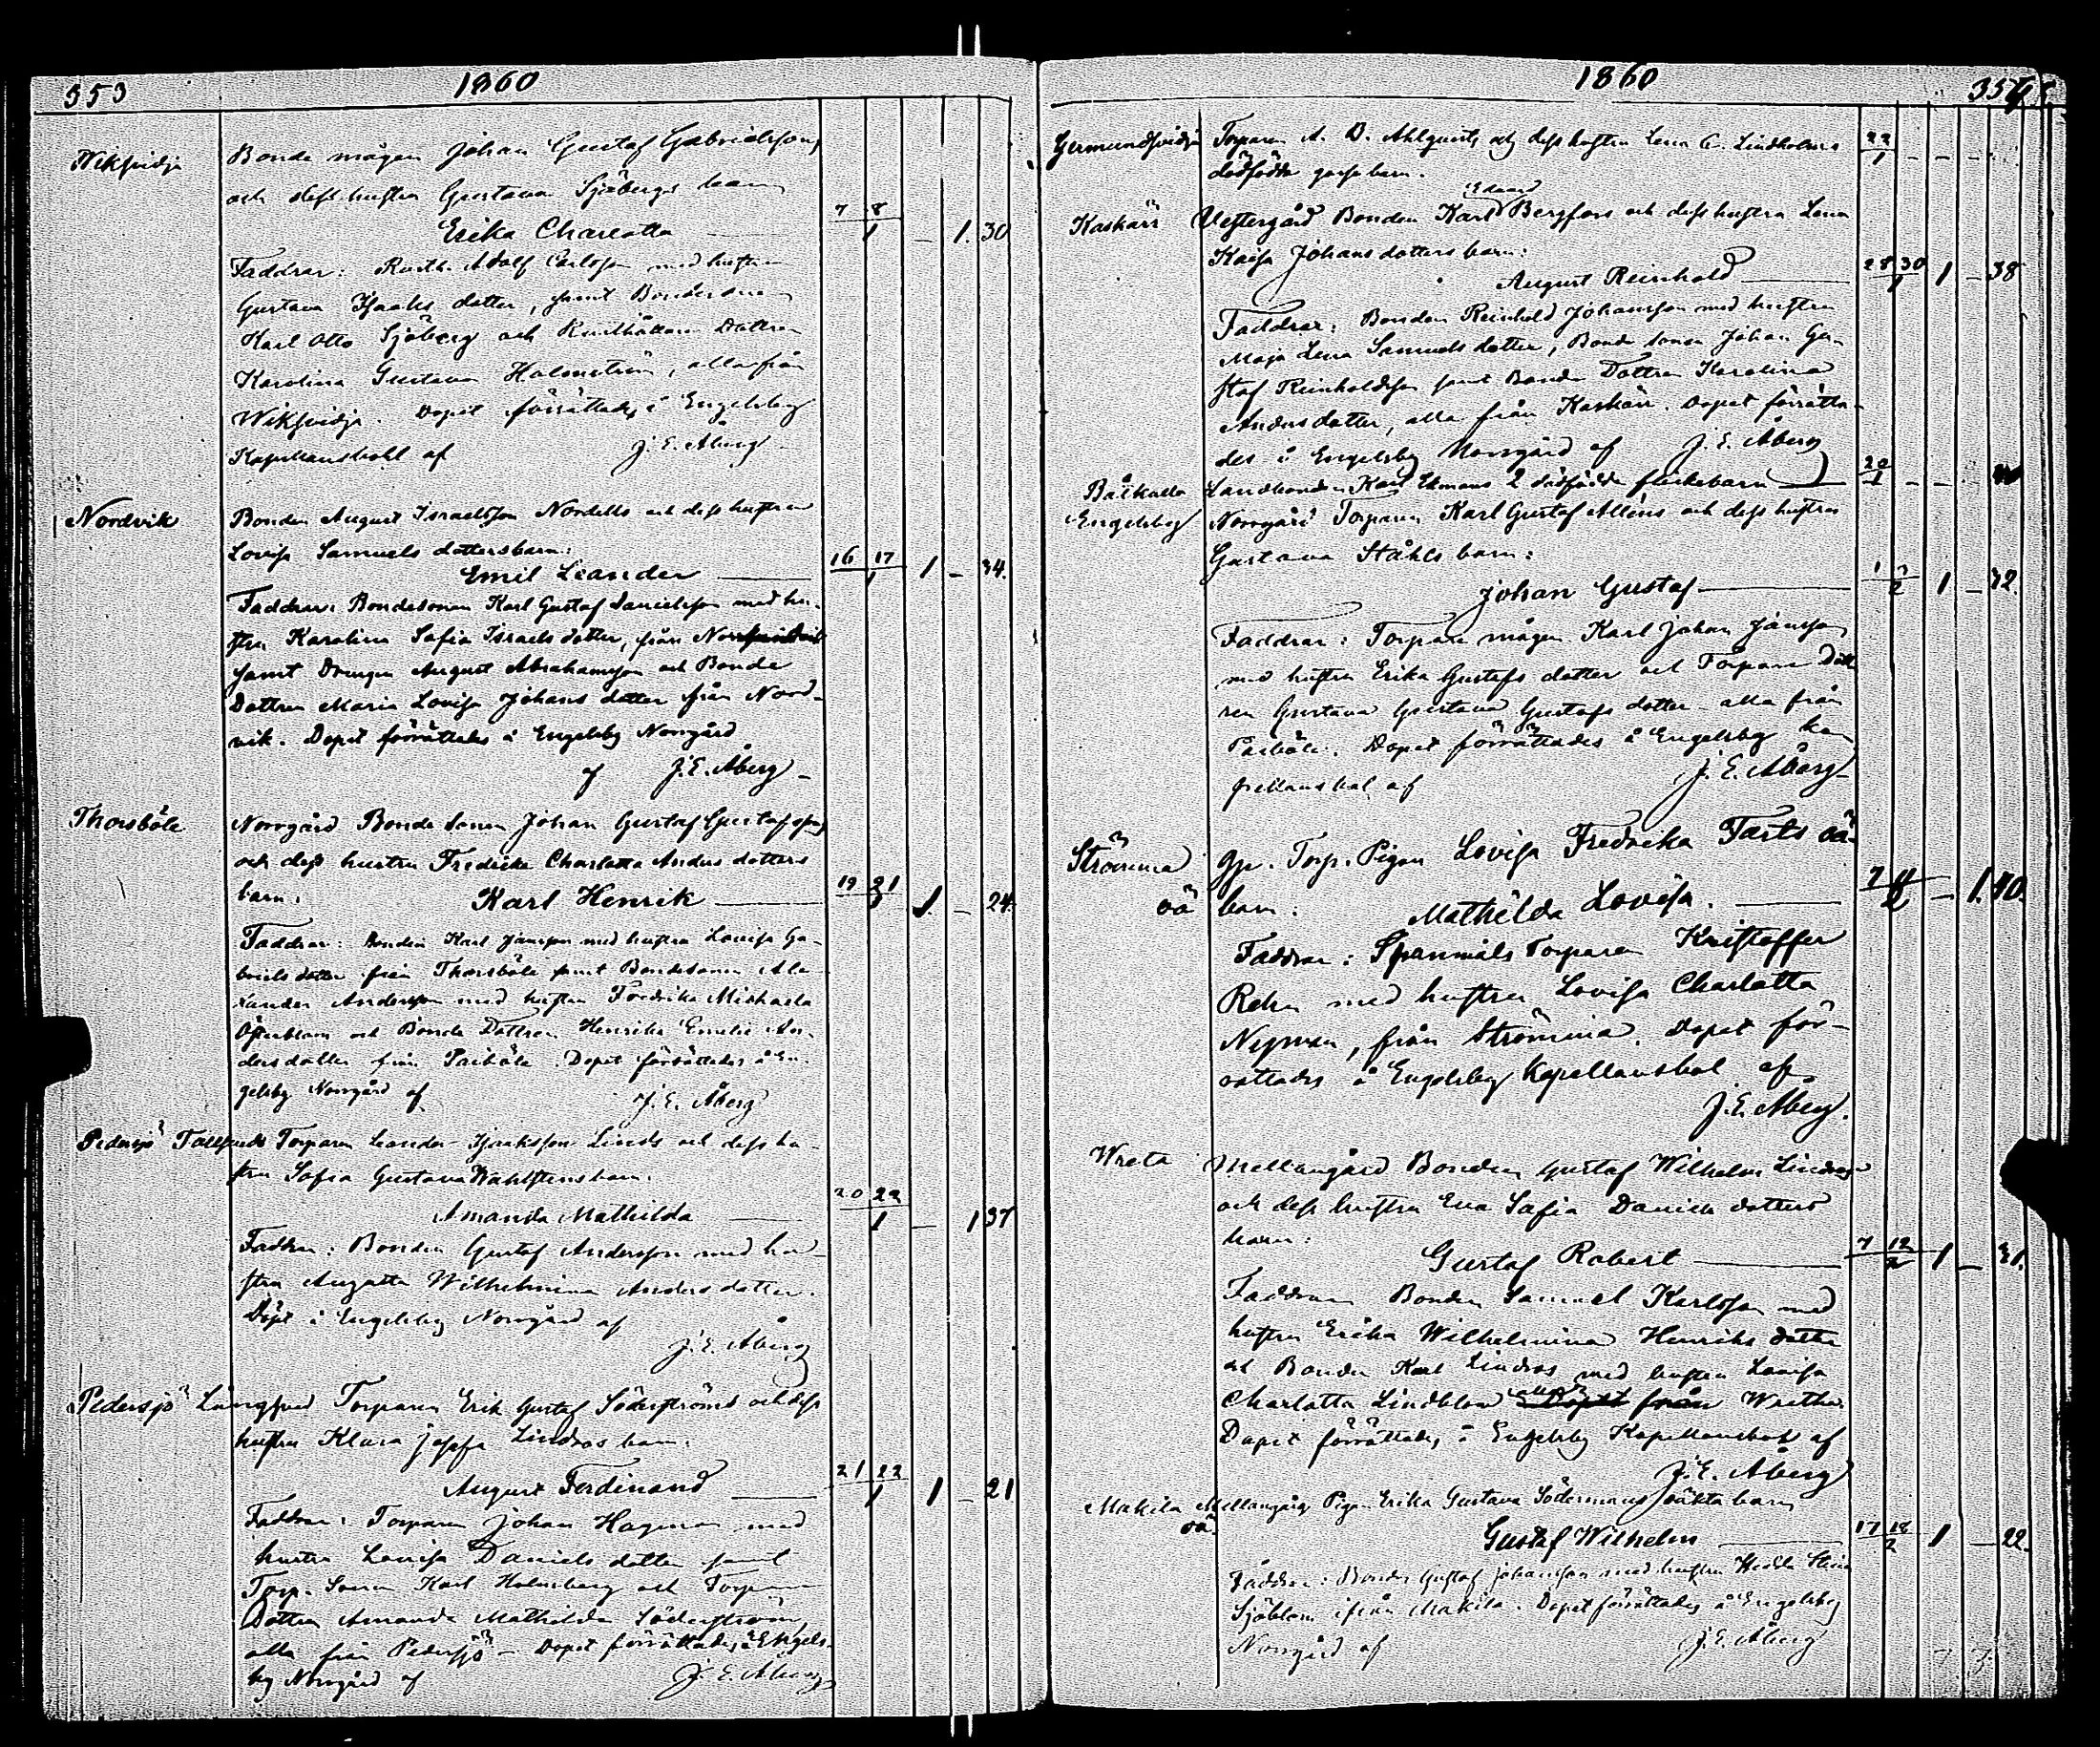 353 1860
Wiksvidja Bonde mågen Johan Gustaf Gabrielssons
och dess hustru Gustava Sjöbergs barn
Erika Charlotta 7 8/1 – 1. 30
Faddrar: Rusth. Adolf Carlsson med hustru
Gustava Isaaks dotter, samt Bondesonen
Karl Otto Sjöberg och Rusthållare Dottren
Karolina Gustava Holmström, alla från
Wiksvidja. Dopet förrättades å Engelsby
Kapellansbohl af J. E. Åberg
Nordvik Bonden August Israelsson Nordells och dess hustru
Lovisa Samuels dotters barn:
Emil Leander 16 17/1 1 – 34.
Faddrar: Bondesonen Karl Gustaf Danielsson med hu-
stru Karolina Sofia Israels dotter, från
samt Drengen August Abrahamsson och Bonde
Dottren Maria Lovisa Johans dotter från Nord-
vik. Dopet förrättades å Engelsby Norrgård
af J. E. Åberg –
Thorsböle Norrgård Bonde Sonen Johan Gustaf Gustafssons
och dess hustru Fredrika Charlotta Anders dotters
barn: Karl Henrik 19 21/1 1. – 24.
Faddrar: Bonden Karl Jansson med hustru Lovisa Ga-
briels dotter från Thorsböle samt Bondesonen Ale-
xander Andersson med hustru Fredrika Michaela
och Bonde Dottren Henrika Emelie An-
ders dotter från Pariböle. Dopet förrättades å En-
gelsby Norrgård af J. E. Åberg
Pedersjö Torparen Leander Isaaksson Linds och dess hu-
stru Sofia Gustava Wahlstens barn.
Amanda Mathilda 20 22/1 – 1 37
Faddrar: Bonden Gustaf Andersson med hu-
stru Augusta Wilhelmina Anders dotter.
Döpt å Engelsby Norrgård af
J. E. Åberg
Pedersjö Torparen Erik Gustaf Söderströms och dess
hustru Klara Josefa Lindros barn:
August Ferdinand 21 22/1 1 – 21
Faddrar: Torparen Johan Hagman med
hustru Lovisa Daniels dotter samt
Torp. Sonen Karl Holmberg och Torpare
Dottren Amanda Mathilda Söderström,
alla från Pedersjö – Dopet förrättades å Engels-
by Norrgård af J. E. Åberg
1860 354
Germundsvidja Torparen A. B. Ahlqvists och dess hustru Lena C. Lindholms 22/1 – – –
dödfödda gossebarn.
Edvard
Kaskärr Vestergård Bonden Karl Bergfors och dess hustru Lena
Kaisa Johans dotters barn:
August Reinhold 28 30/1 1 – 38
Faddrar: Bonden Reinhold Johansson med hustru
Maja Lena Samuels dotter, Bonde Sonen Johan Gu-
staf Reinholdsson samt Bonde Dottren Karolina
Anders dotter, alla från Kaskärr. Dopet förrätta-
des å Engelsby Norrgård af J. E. Åberg
Landbonden Karl Ekmans 2 dödfödda flickebarn 20/1 – – –
Engelsby Norrgård Torparen Karl Gustaf Alléns och dess hustru
Gustava Ståhls barn:
Johan Gustaf 1 /2 1 – 32.
Faddrar: Torpare mågen Karl Johan Jansson
med hustru Erika Gustafs dotter och Torpare Dott-
ren Gustava Gustava Gustafs dotter alla från
Pariböle. Dopet förrättades å Engelsby Ka-
pellansbol af J. E. Åberg
Strömma Gp. Torp. Pigan Lovisa Fredrika Tarts oä
oä barn: Mathilda Lovisa. 7 11/2 – 1. 40.
Faddrar: Spannmåls Torparen Kristoffer
Rehn med hustru Lovisa Charlotta
Nyman, från Strömma. Dopet för-
rättades å Engelsby Kapellansbol af
J. E. Åberg.
Wreta Mellangård Bonden Gustaf Wilhelm Lindros
och dess hustru Eva Sofia Daniels dotters
barn:
Gustaf Robert 7 12/2 1 – 31.
Faddrar Bonden Samuel Karlsson med
hustru Erika Wilhelmina Henriks dotter
och Bonden Karl Lindros med hustru Lovisa
Charlotta Lindblom från Wretha.
Dopet förrättades å Engelsby Kapellansbol af
J. E. Åberg
Makila Mellangårds Pigan Erika Gustava Södermans oäkta barn
oä. Gustaf Wilhelm 17 18/2 1 – 22.
Faddrar: Bonden Gustaf Johansson med hustru Hedda Stina
Sjöblom ifrån Makila. Dopet förrättades å Engelsby
Norrgård af J. E. Åberg